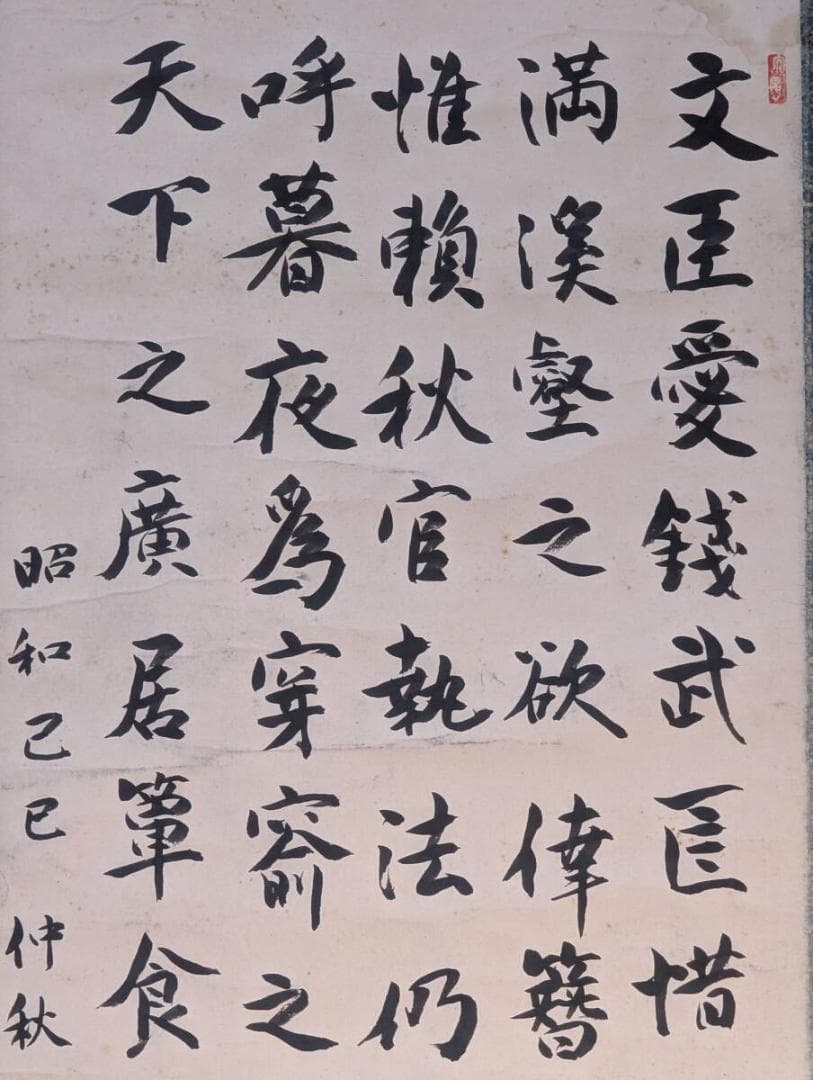 文臣愛錢武臣惜
満溪壑之欲倖簪
惟賴秋官執法仍
呼暮夜為穿窬之
天下之廣居簞食
昭和己巳仲秋